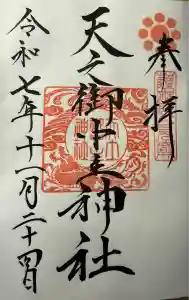 奉拝
天之御中主神社
令和七年十一月二十四日